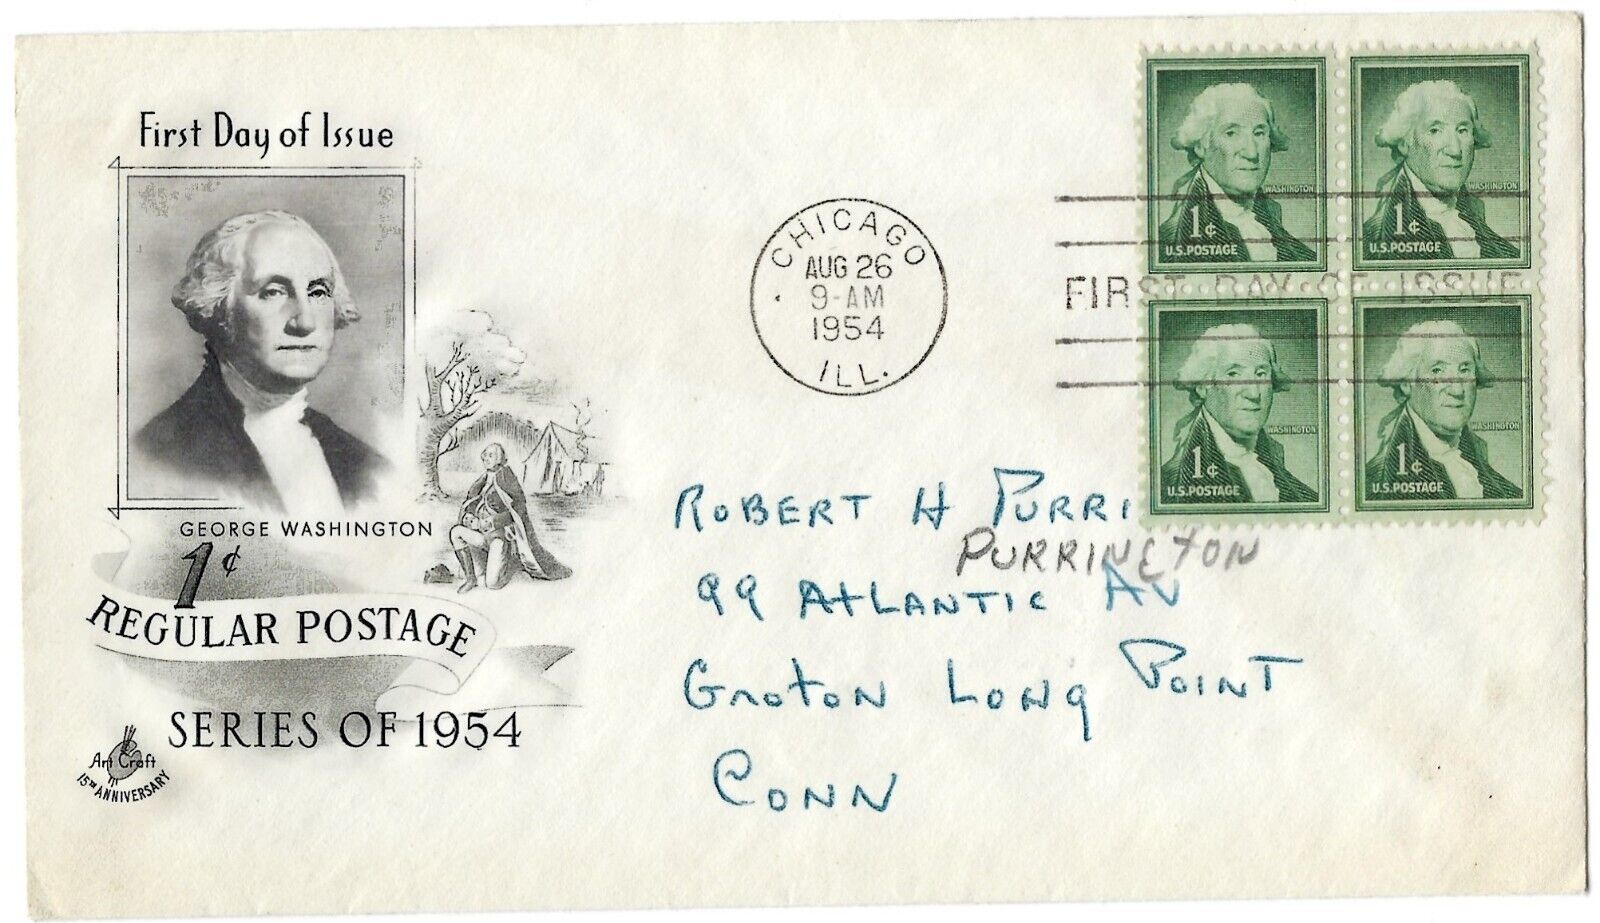 First Day of Issue
GEORGE WASHINGTON
1¢
REGULAR POSTAGE
SERIES OF 1954
Art Craft
15TH ANNIVERSARY
CHICAGO
AUG 26
9-AM
1954
ILL.
FIRST DAY OF ISSUE
WASHINGTON
1¢
U.S.POSTAGE
WASHINGTON
1¢
U.S.POSTAGE
WASHINGTON
1¢
U.S.POSTAGE
WASHINGTON
1¢
U.S.POSTAGE
ROBERT H PURRI
PURRINGTON
99 ATLANTIC AV
GROTON LONG POINT
CONN